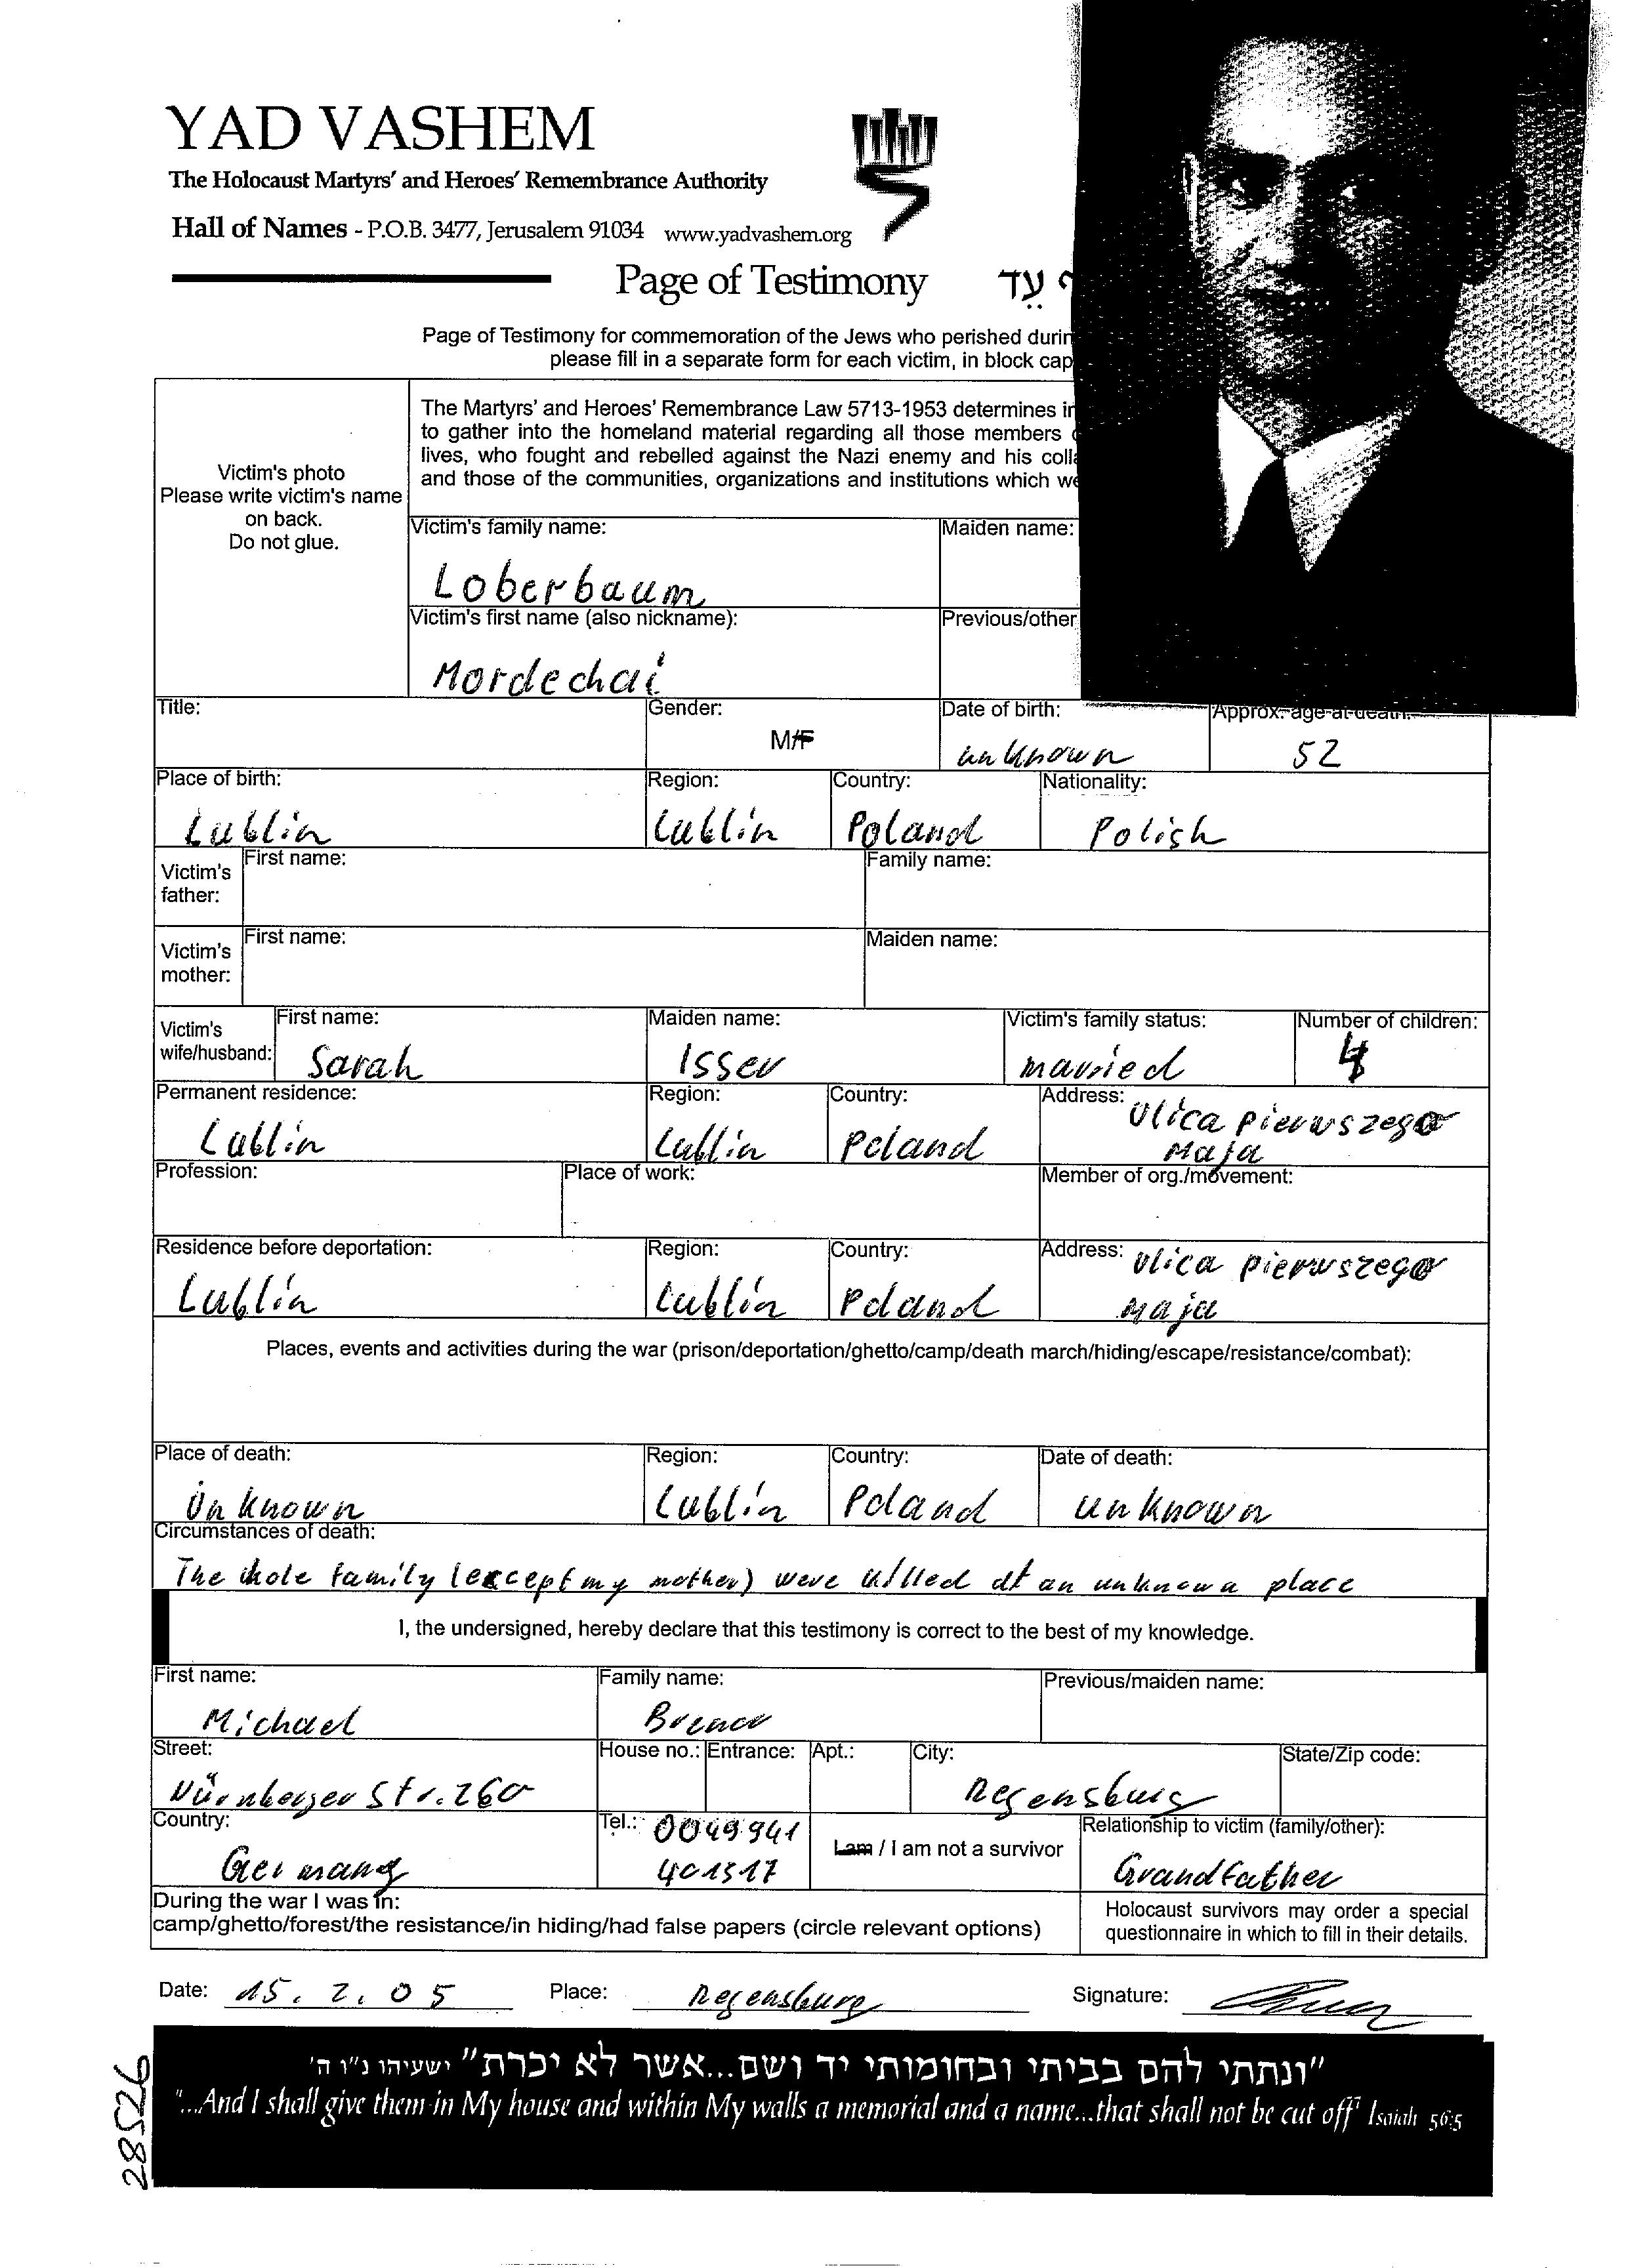 YAD VASHEM
The Holocaust Martyrs' and Heroes' Remembrance Authority
Hall of Names - P.O.B. 3477, Jerusalem 91034 www.yadvashem.org
Page of Testimony עֵד
Page of Testimony for commemoration of the Jews who perished
please fill in a separate form for each victim, in block
Victim's photo
Please write victim's name
on back.
Do not glue.
The Martyrs' and Heroes' Remembrance Law 5713-1953 determines
to gather into the homeland material regarding all those members
lives, who fought and rebelled against the Nazi enemy and his
and those of the communities, organizations and institutions which
Victim's family name: Maiden name:
Loberbaum
Victim's first name (also nickname): Previous/other
Mordechai
Title: Gender: Date of birth: Approx. age at death:
M/F unknown 52
Place of birth: Region: Country: Nationality:
Lublin Lublin Poland Polish
Victim's father: First name: Family name:
Victim's mother: First name: Maiden name:
Victim's wife/husband: First name: Maiden name: Victim's family status: Number of children:
Sarah Isser married 4
Permanent residence: Region: Country: Address:
Lublin Lublin Poland Ulica pierwszego
Maja
Profession: Place of work: Member of org./movement:
Residence before deportation: Region: Country: Address:
Lublin Lublin Poland Ulica pierwszego
Maja
Places, events and activities during the war (prison/deportation/ghetto/camp/death march/hiding/escape/resistance/combat):
Place of death: Region: Country: Date of death:
Unknown Lublin Poland unknown
Circumstances of death:
The whole family (except my mother) were killed at an unknown place
I, the undersigned, hereby declare that this testimony is correct to the best of my knowledge.
First name: Family name: Previous/maiden name:
Michael Brenner
Street: House no.: Entrance: Apt.: City: State/Zip code:
Nürnberger Str. 260 Regensburg
Country: Tel.: 0049941 I am / I am not a survivor Relationship to victim (family/other):
Germany 401517 Grandfather
During the war I was in:
camp/ghetto/forest/the resistance/in hiding/had false papers (circle relevant options)
Holocaust survivors may order a special
questionnaire in which to fill in their details.
Date: 15. 2. 05 Place: Regensburg Signature:
"ונתתי להם בביתי ובחומותי יד ושם...אשר לא יכרת" ישעיהו נ"ו ה'
"...And I shall give them in My house and within My walls a memorial and a name...that shall not be cut off" Isaiah 56:5
28526